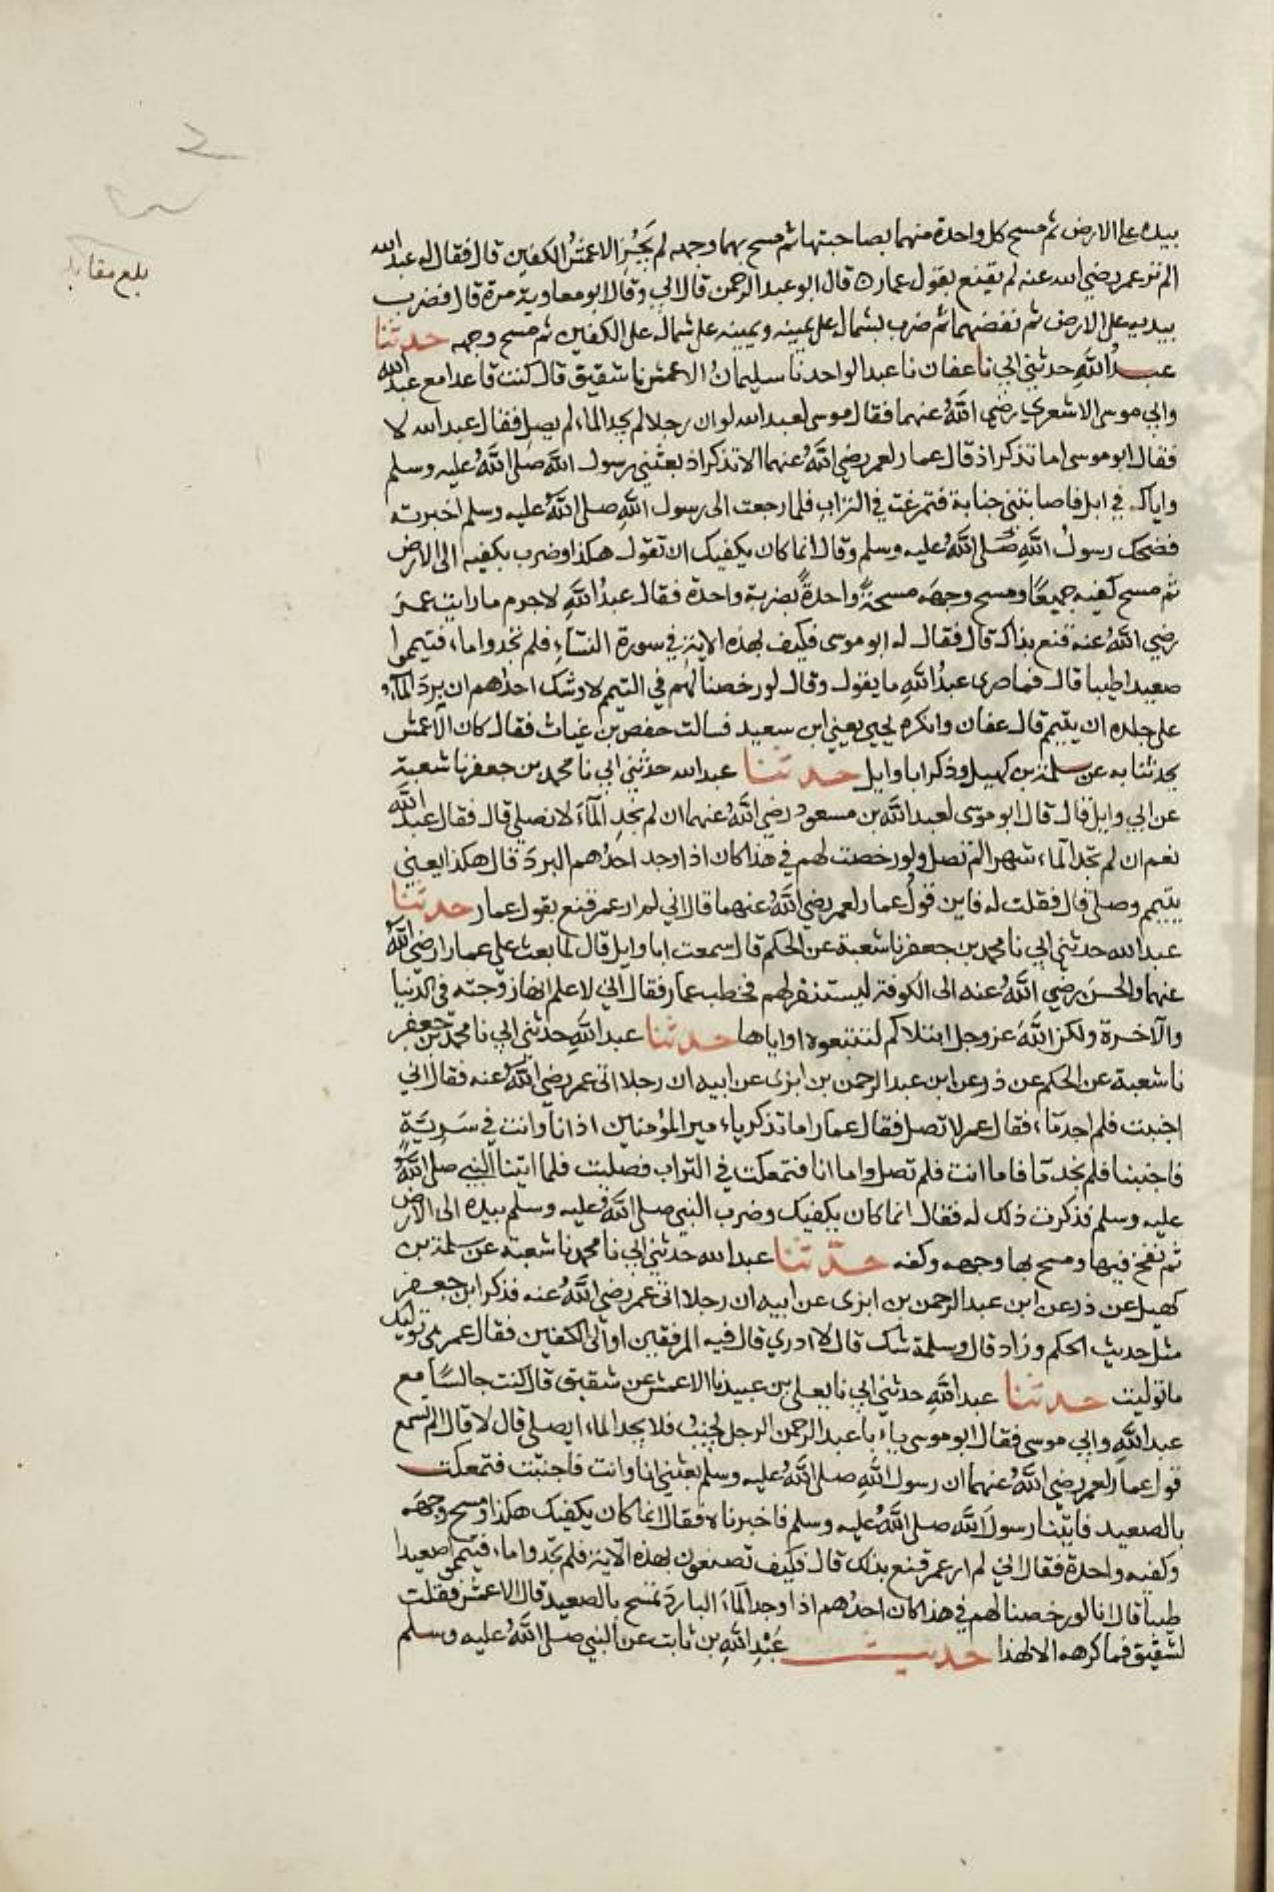 بلغ مقابلة
بيده على الارض ثم مسح كل واحدة منهما بصاحبتها ثم مسح بهما وجهه لم يَجُزِ الاعمشُ الكفين قال فقال له عبد الله
الم تر عمر رضي الله عنه لم يقنع بقول عمار ٥ قال ابو عبد الرحمن قال ابي وقال ابو معاوية مرة قال فضرب
بيديه على الارض ثم نفضهما ثم ضرب بشماله على يمينه ويمينه على شماله على الكفين ثم مسح وجهه حدثنا
عبدُ اللهِ حدثني ابي نا عفان نا عبد الواحد نا سليمانُ الاعمش نا شقيق قال كنت قاعدا مع عبد الله
وابي موسى الاشعري رضي اللهُ عنهما فقال موسى لعبد الله لو ان رجلا لم يجد الماء لم يصل فقال عبد الله لا
فقال ابو موسى اما تذكر اذ قال عمار لعمر رضي اللهُ عنهما الا تذكر اذ بعثني رسول الله صلى اللهُ عليه وسلم
واياك في ابل فاصابتني جنابة فتمرغت في التراب فلما رجعت الى رسول اللهِ صلى اللهُ عليه وسلم اخبرته
فضحك رسولُ اللهِ صلى اللهُ عليه وسلم وقال انما كان يكفيك ان تقول هكذا وضرب بكفيه الى الارض
ثم مسح كفيه جميعًا ومسح وجهَه مسحةً واحدةً بضربة واحدة فقال عبدُ اللهِ لا جرم ما رايت عمرَ
رضي اللهُ عنه قنع بذاك قال فقال له ابو موسى فكيف بهذه الاية في سورة النساءِ فلم تجدوا ماء فتيمموا
صعيدا طيبا قال فما درى عبدُ اللهِ ما يقول وقال لو رخصنا لهم في التيمم لاوشك احدُهم ان بردَ الماءُ
على جلده ان يتيمم قال عفان وانكره يحيى يعني ابن سعيد فسالت حفص بن غياث فقال كان الاعمش
يحدثنا به عن سلمة بن كهيل وذكر ابا وايل حدثنا عبد الله حدثني ابي نا محمد بن جعفر نا شعبة
عن ابي وايل قال قال ابو موسى لعبد الله بن مسعود رضي اللهُ عنهما ان لم نجدِ الماءَ لا نصلي قال فقال عبد الله
نعم ان لم نجد الماء شهرا لم نصل ولو رخصت لهم في هذا كان اذا وجد احدُهم البردَ قال هكذا يعني
يتيمم وصلى قال فقلت له فاين قولُ عمار لعمر رضي اللهُ عنهما قال اني لم ار عمر قنع بقول عمار حدثنا
عبد الله حدثني ابي نا محمد بن جعفر نا شعبة عن الحكم قال سمعت ابا وايل قال لما بعث علي عمارا رضي الله
عنهما والحسنَ رضي اللهُ عنه الى الكوفة ليستنفرهم فخطب عمار فقال اني لاعلم انها زوجته في الدنيا
والآخرة ولكن اللهَ عز وجل ابتلاكم لتتبعوه او اياها حدثنا عبد اللهِ حدثني ابي نا محمد بن جعفر
نا شعبة عن الحكم عن ذر عن ابن عبد الرحمن بن ابزى عن ابيه ان رجلا اتى عمر رضي اللهُ عنه فقال اني
اجنبت فلم اجد ماء فقال عمر لا تصل فقال عمار اما تذكر يا امير المؤمنين اذ انا وانت في سَرِيَّةٍ
فاجنبنا فلم نجد ما فاما انت فلم تصل واما انا فتمعكت في التراب فصليت فلما اتينا النبي صلى الله
عليه وسلم فذكرت ذلك له فقال انما كان يكفيك وضرب النبي صلى اللهُ عليه وسلم بيده الى الارض
ثم نفخ فيها ومسح بها وجهه وكفه حدثنا عبد الله حدثني ابي نا محمد نا شعبة عن سلمة بن
كهيل عن ذر عن ابن عبد الرحمن بن ابزى عن ابيه ان رجلا اتى عمر رضي اللهُ عنه فذكر ابن جعفر
مثل حديث الحكم وزاد قال وسلمة شك قال لا ادري قال فيه المرفقين او الى الكفين فقال عمر بلى نوليك
ما توليت حدثنا عبد اللهِ حدثني ابي نا يعلى بن عبيد نا الاعمش عن شقيق قال كنت جالسًا مع
عبد اللهِ وابي موسى فقال ابو موسى يا ابا عبد الرحمن الرجل يجنبُ فلا يجد الماء ايصلي قال لا قال الم تسمع
قول عمار لعمر رضي اللهُ عنهما ان رسول اللهِ صلى اللهُ عليه وسلم بعثني انا وانت فاجنبت فتمعكت
بالصعيد فاتينا رسولَ الله صلى اللهُ عليه وسلم فاخبرناه فقال انما كان يكفيك هكذا ومسح وجهَه
وكفيه واحدة فقال اني لم ار عمر قنع بذلك قال فكيف تصنعون بهذه الآية فلم تجدوا ماء فتيمموا صعيدا
طيبا قال انا لو رخصنا لهم في هذا كان احدُهم اذا وجد الماءَ الباردَ تمسح بالصعيد قال الاعمش فقلت
لشقيق فما كرهه الا لهذا حديث عَبْدِ اللهِ بن ثابت عن النبي صلى اللهُ عليه وسلم